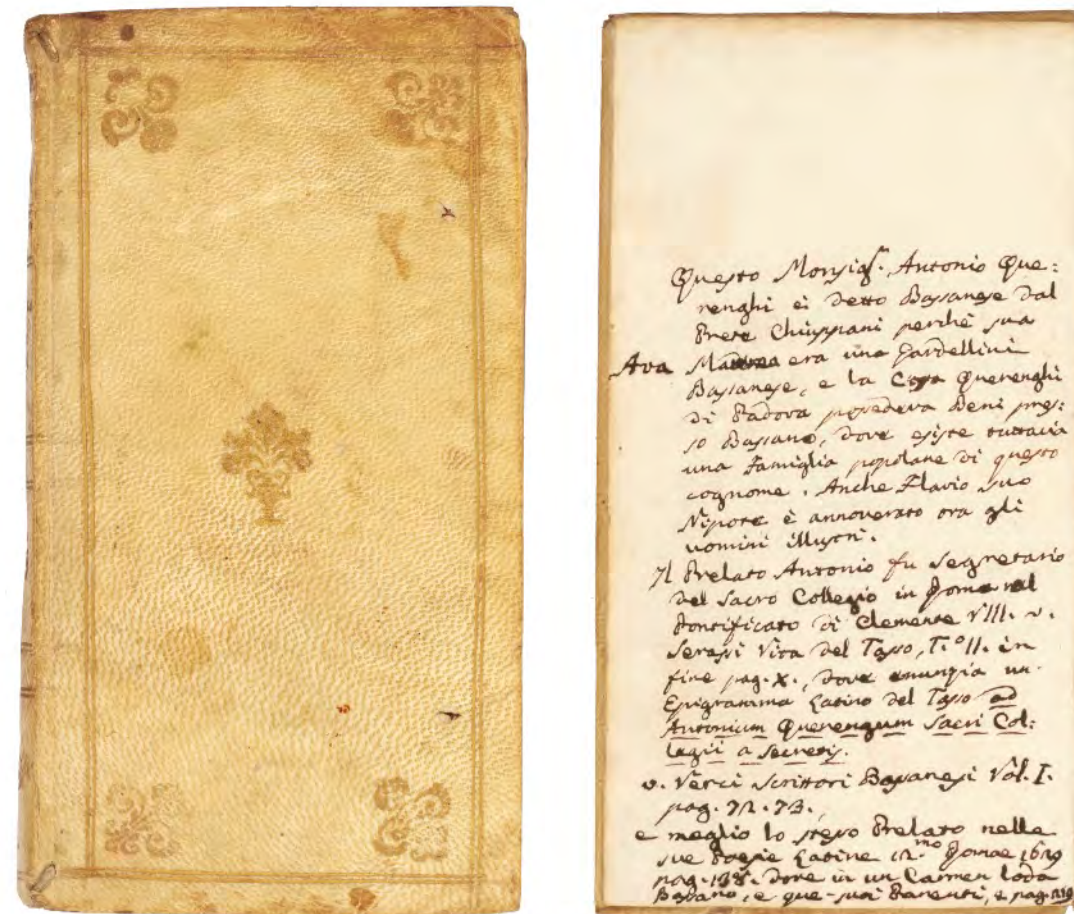 Questo Monsigr. Antonio Que:
renghi è detto Bassanese dal
Prete Chiuppani perchè sua
Ava Madrea era una Gardellini
Bassanese, e la Casa Querenghi
di Padova possedeva Beni pres:
so Bassano, dove esiste tuttavia
una Famiglia popolane di questo
cognome. Anche Flavio suo
Nipote è annoverato tra gli
uomini illustri.
Il Prelato Antonio fu Segretario
del Sacro Collegio in Roma nel
Pontificato di Clemente VIII. v.
Serassi Vita del Tasso, T.º II. in
fine pag. X., dove annunzia un
Epigramma Latino del Tasso ad
Antonium Querengum Sacri Col:
legii a Secretis.
v. Verci Scrittori Bassanesi Vol. I.
pag. 72. 73.
e meglio lo stesso Prelato nelle
sue Poesie Latine 12.mo Romae 1629
pag. 138. dove in un Carmen loda
Bassano, e que' suoi Parenti, e pag.